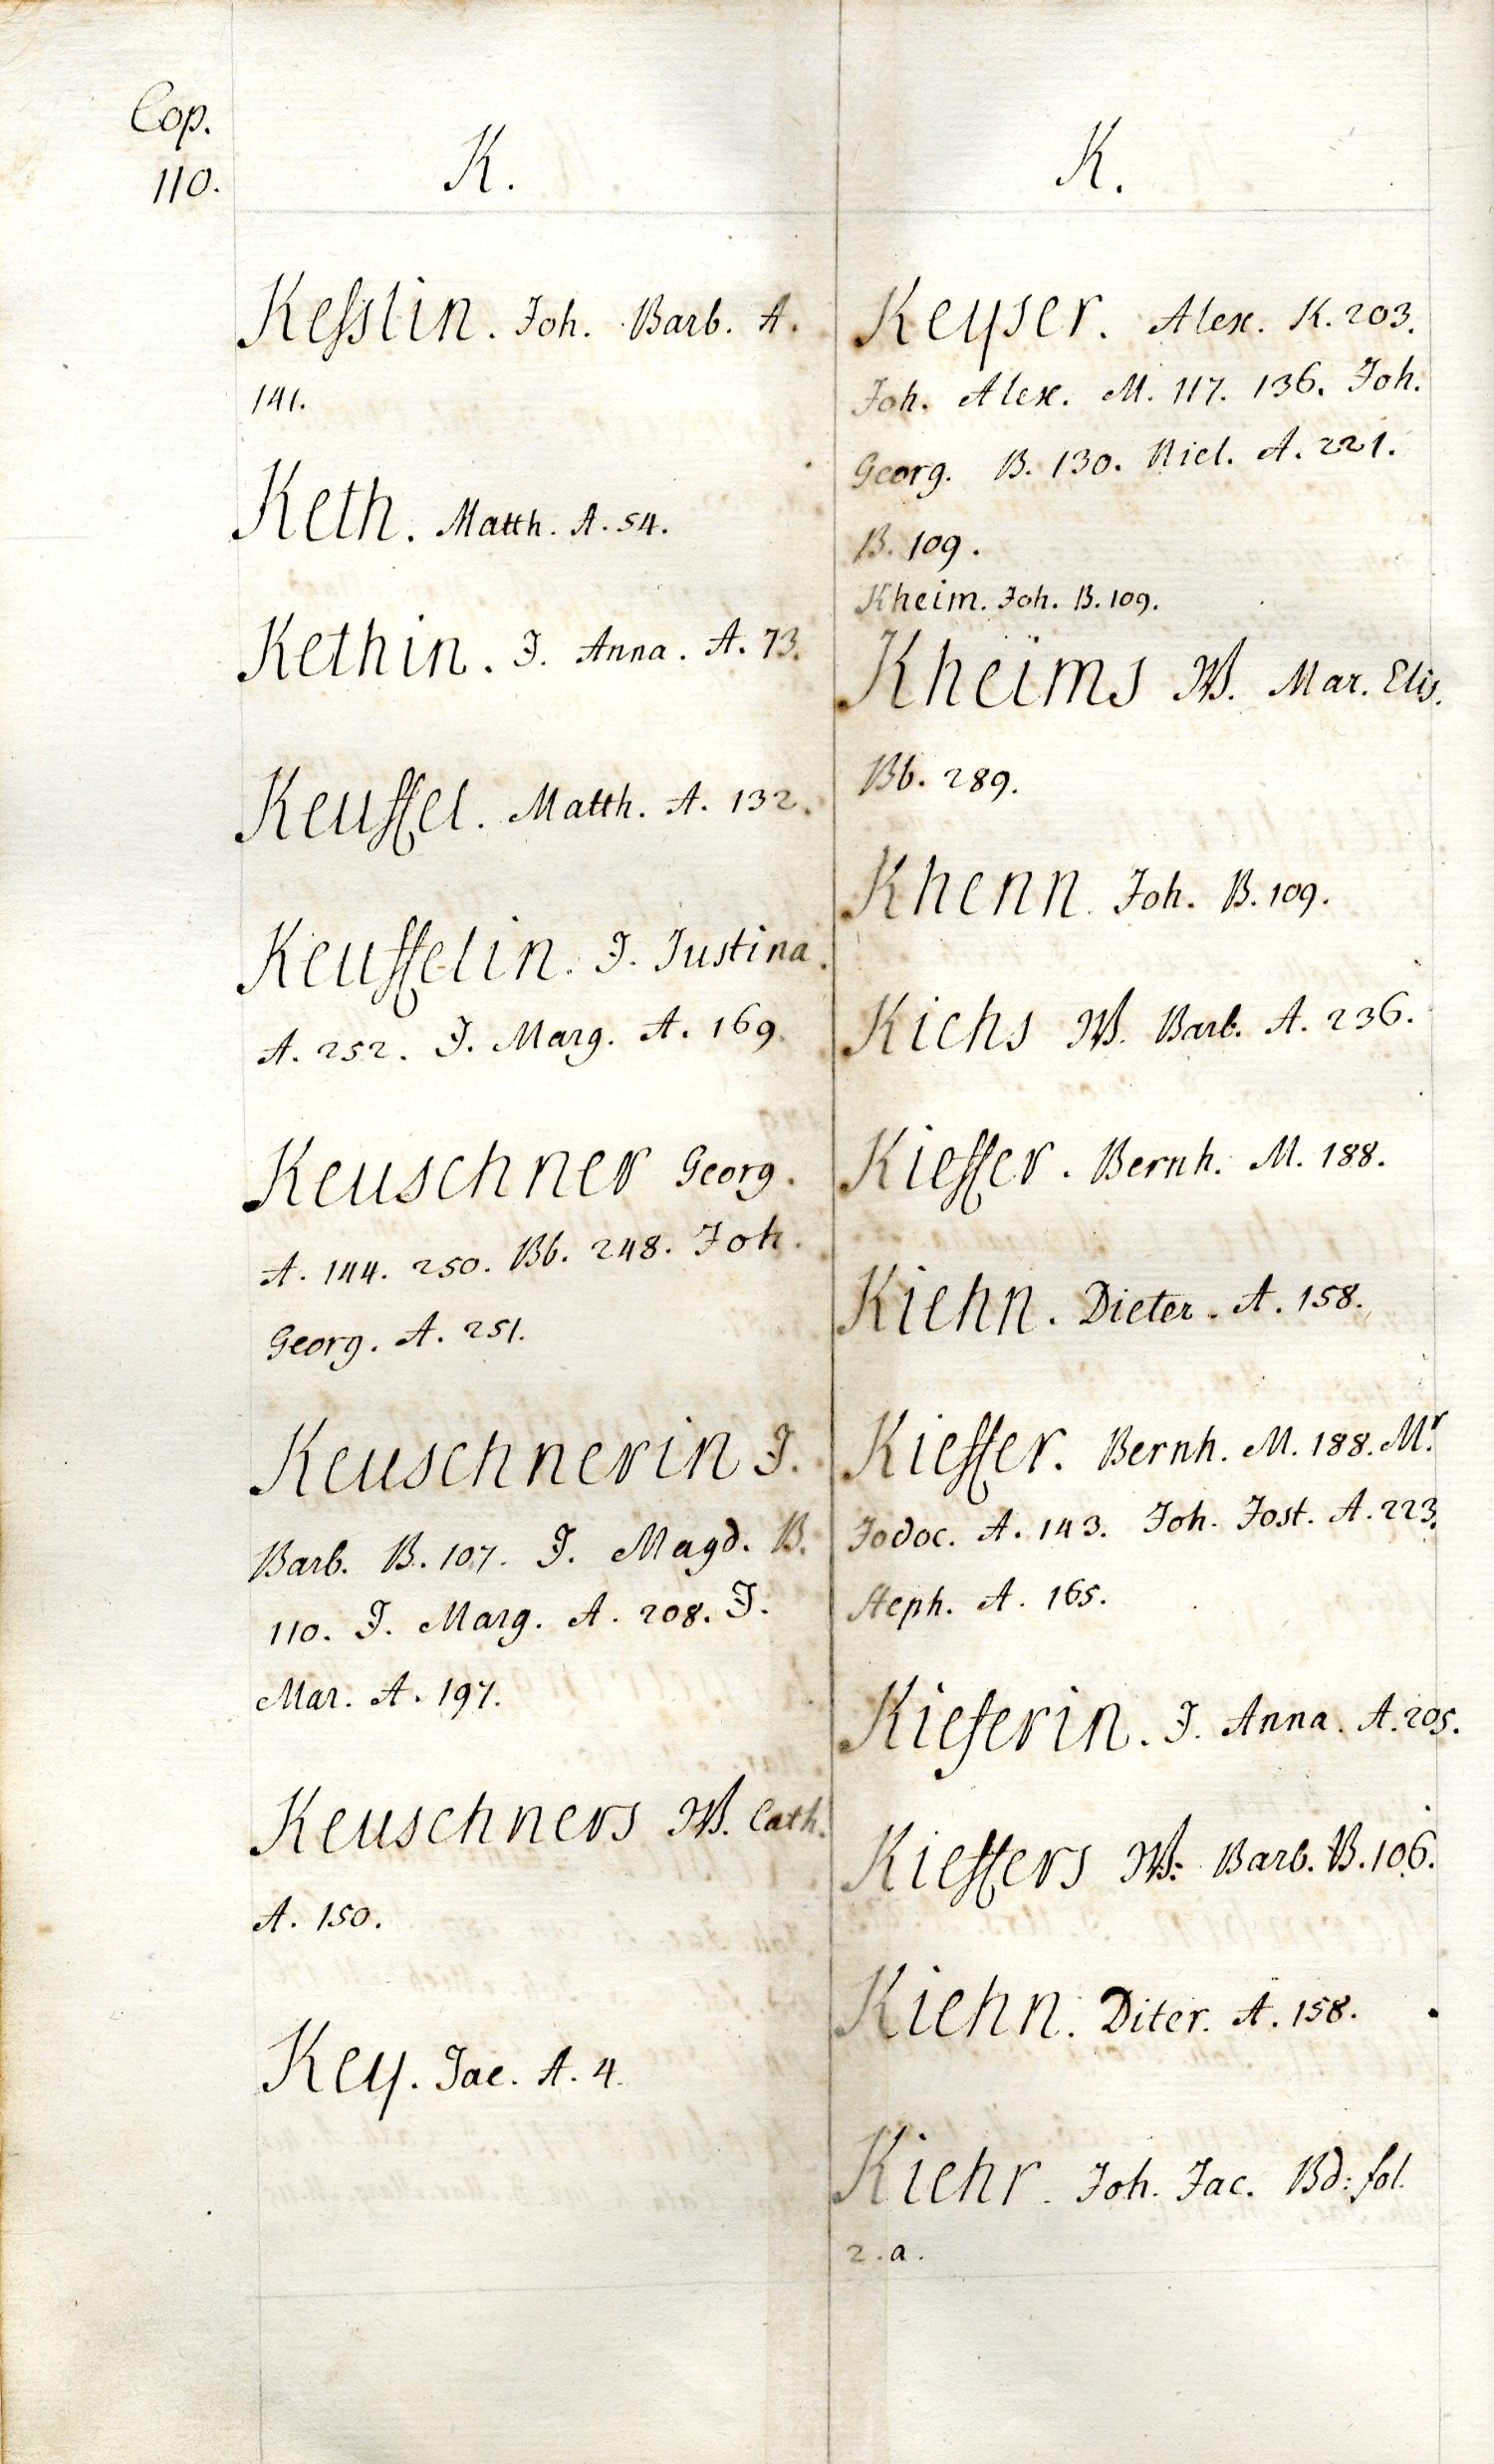 Cop.
110.
K.
Kesslin. Joh. Barb. A.
141.
Keth. Matth. A. 54.
Kethin. J. Anna. A. 73.
Keuffel. Matth. A. 132.
Keuffelin. J. Justina.
A. 252. J. Marg. A. 169.
Keuschner Georg.
A. 144. 250. Bb. 248. Joh.
Georg. A. 251.
Keuschnerin J.
Barb. B. 107. J. Magd. B.
110. J. Marg. A. 208. J.
Mar. A. 197.
Keuschners W. Cath.
A. 150.
Key. Jac. A. 4.
K.
Keyser. Alex. K. 203.
Joh. Alex. M. 117. 136. Joh.
Georg. B. 130. Nicl. A. 221.
B. 109.
Kheim. Joh. B. 109.
Kheims W. Mar. Elis.
Bb. 289.
Khenn. Joh. B. 109.
Kichs W. Barb. A. 236.
Kieffer. Bernh. M. 188.
Kiehn. Dieter. A. 158.
Kieffer. Bernh. M. 188. Mr.
Jodoc. A. 143. Joh. Jost. A. 223.
Steph. A. 165.
Kieferin. J. Anna. A. 205.
Kieffers W. Barb. B. 106.
Kiehn. Diter. A. 158.
Kiehr. Joh. Jac. Bd: fol.
2. a.